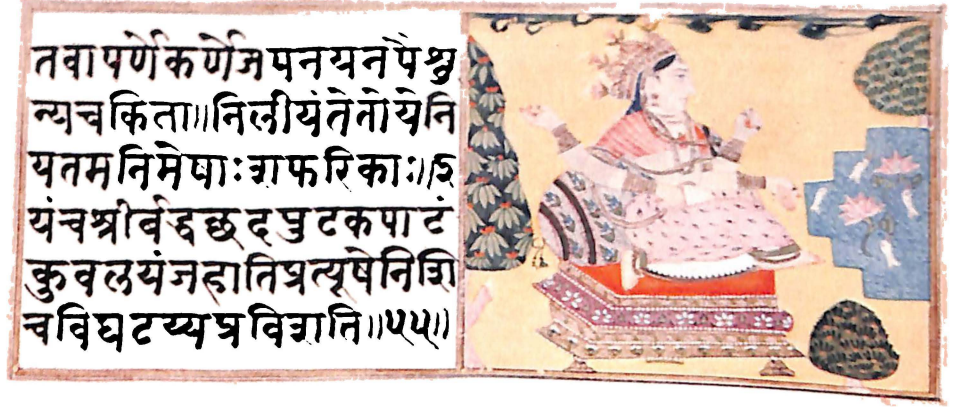 तवापर्णेकर्णेजपनयनपैशु
न्यचकिता॥निलीयंतेतोयेनि
यतमनिमेषाःशफरिकाः॥इ
यंचश्रीर्बद्धछदपुटकपाटं
कुवलयंजहातिप्रत्यूषेनिशि
चविघटय्यप्रविशति॥५५॥